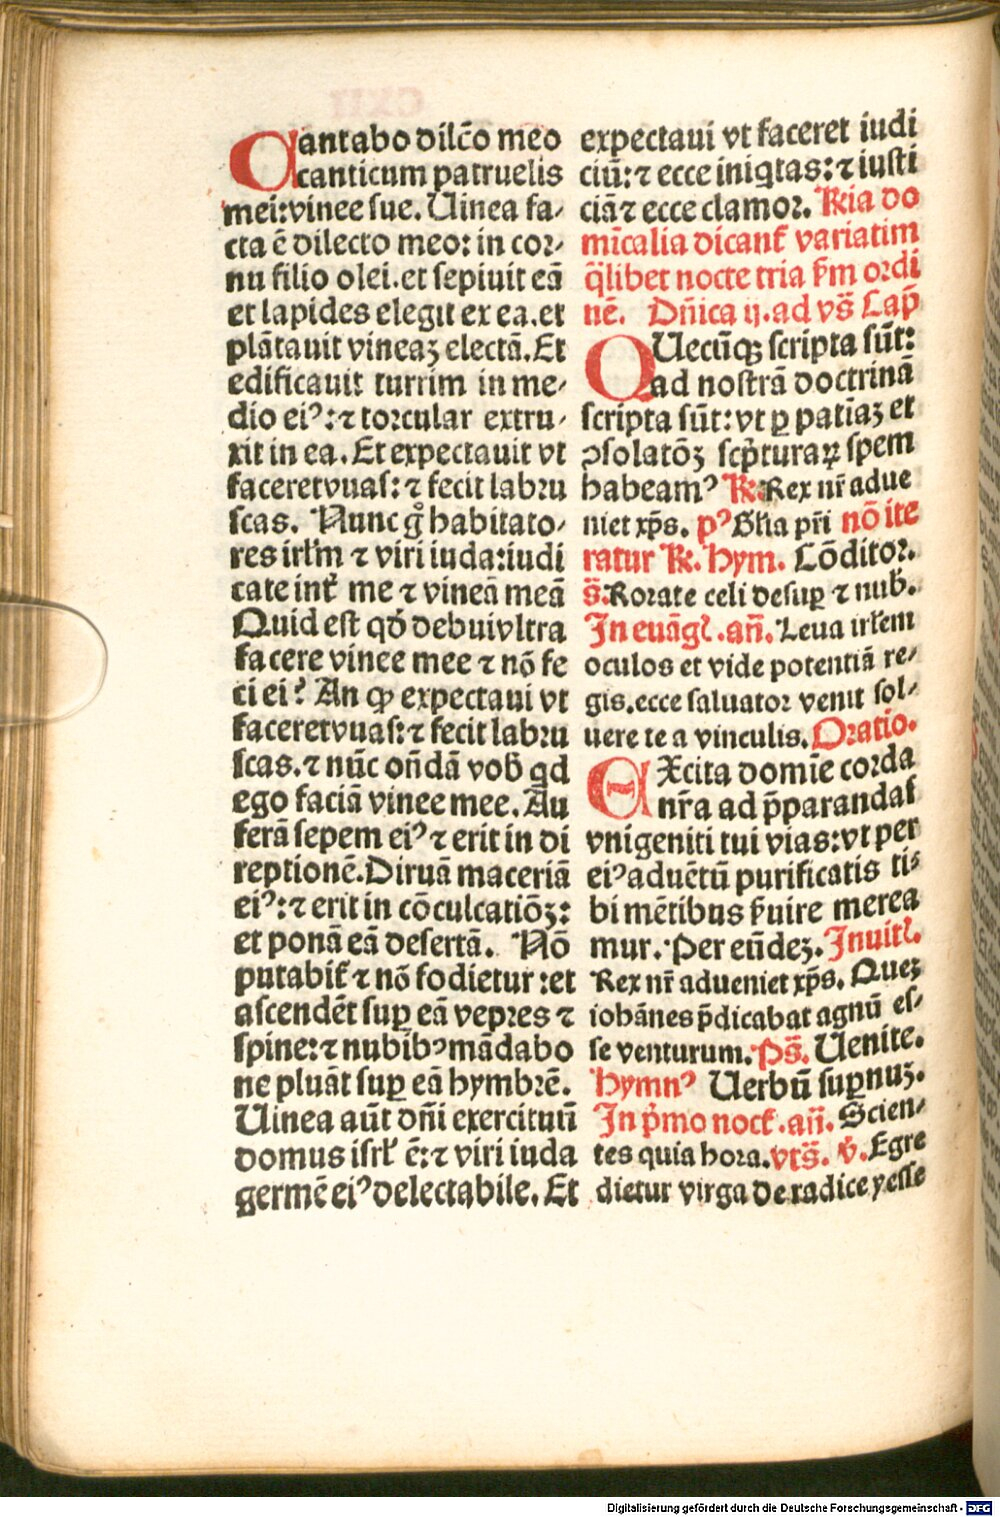 Cantabo dilc̄o meo
canticum patruelis
mei: vinee sue. Uinea fa⸗
cta ē dilecto meo: in cor⸗
nu filio olei. et sepiuit eā
et lapides elegit ex ea. et
plātauit vineaꝫ electā. Et
edificauit turrim in me⸗
dio eiꝰ: ⁊ torcular extru⸗
xit in ea. Et expectauit vt
faceret vuas: ⁊ fecit labru
scas. Nunc gͦ habitato⸗
res irl̄m ⁊ viri iuda: iudi
cate int̄ me ⁊ vineā meā
Quid est qd̄ debui vltra
facere vinee mee ⁊ nō fe
ci ei? An ꝙ expectaui vt
faceret vuas: ⁊ fecit labru
scas. ⁊ nūc on̄dā vob̄ qd
ego faciā vinee mee. Au
ferā sepem eiꝰ ⁊ erit in di
reptionē. Diruā maceriā
eiꝰ: ⁊ erit in cōculcatiōꝫ:
et ponā eā desertā. Nō
putabit̄ ⁊ nō fodietur: et
ascendēt suꝑ eā vepres ⁊
spine: ⁊ nubibꝰ mādabo
ne pluāt suꝑ eā hymbrē.
Uinea aūt dn̄i exercituū
domus isrl̄ ē: ⁊ viri iuda
germē eiꝰ delectabile. Et
expectaui vt faceret iudi
ciū: ⁊ ecce iniqtas: ⁊ iusti
ciā ⁊ ecce clamor. R̄ia do
mīcalia dicant̄ variatim
q̄libet nocte tria p̄m ordi
nē. Dn̄ica ij. ad vs̄ Cap̄
QUecūqꝫ scripta sūt:
ad nostrā doctrinā
scripta sūt: vt ꝑ patiāꝫ et
ꝯsolatōꝫ scp̄turaꝝ spem
habeamꝰ R̄. Rex nr̄ adue
niet xp̄s. pꝰ Gl̄ia pr̄i nō ite
ratur R̄. Hym. Cōditor.
s̄. Rorate celi desuꝑ ⁊ nub̄.
In euāgl̄. an̄. Leua irl̄em
oculos et vide potentiā re⸗
gis. ecce saluator venit sol⸗
uere te a vinculis. Oratio.
EXcita domīe corda
nr̄a ad p̄parandas
vnigeniti tui vias: vt per
eiꝰ aduētū purificatis ti⸗
bi mētibus ẜuire merea
mur. Per eūdeꝫ. Inuitl̄.
Rex nr̄ adueniet xp̄s. Queꝫ
iohānes p̄dicabat agnū es⸗
se venturum. Ps̄. Uenite.
Hymnꝰ Uerbū suꝑnuꝫ.
In p̄mo noct̄. an̄. Scien⸗
tes quia hora. vts̄. v̄. Egre
dietur virga de radice yesse
Digitalisierung gefördert durch die Deutsche Forschungsgemeinschaft - DFG